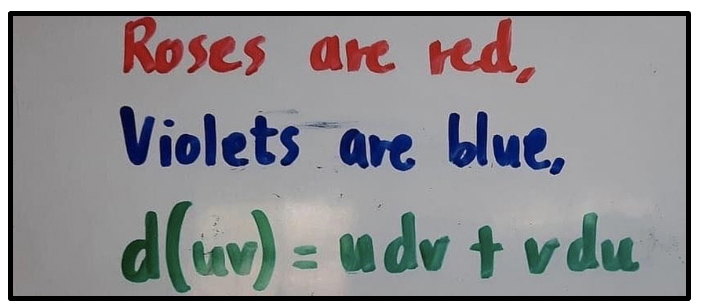 Roses are red,
Violets are blue,
d(uv) = udv + vdu